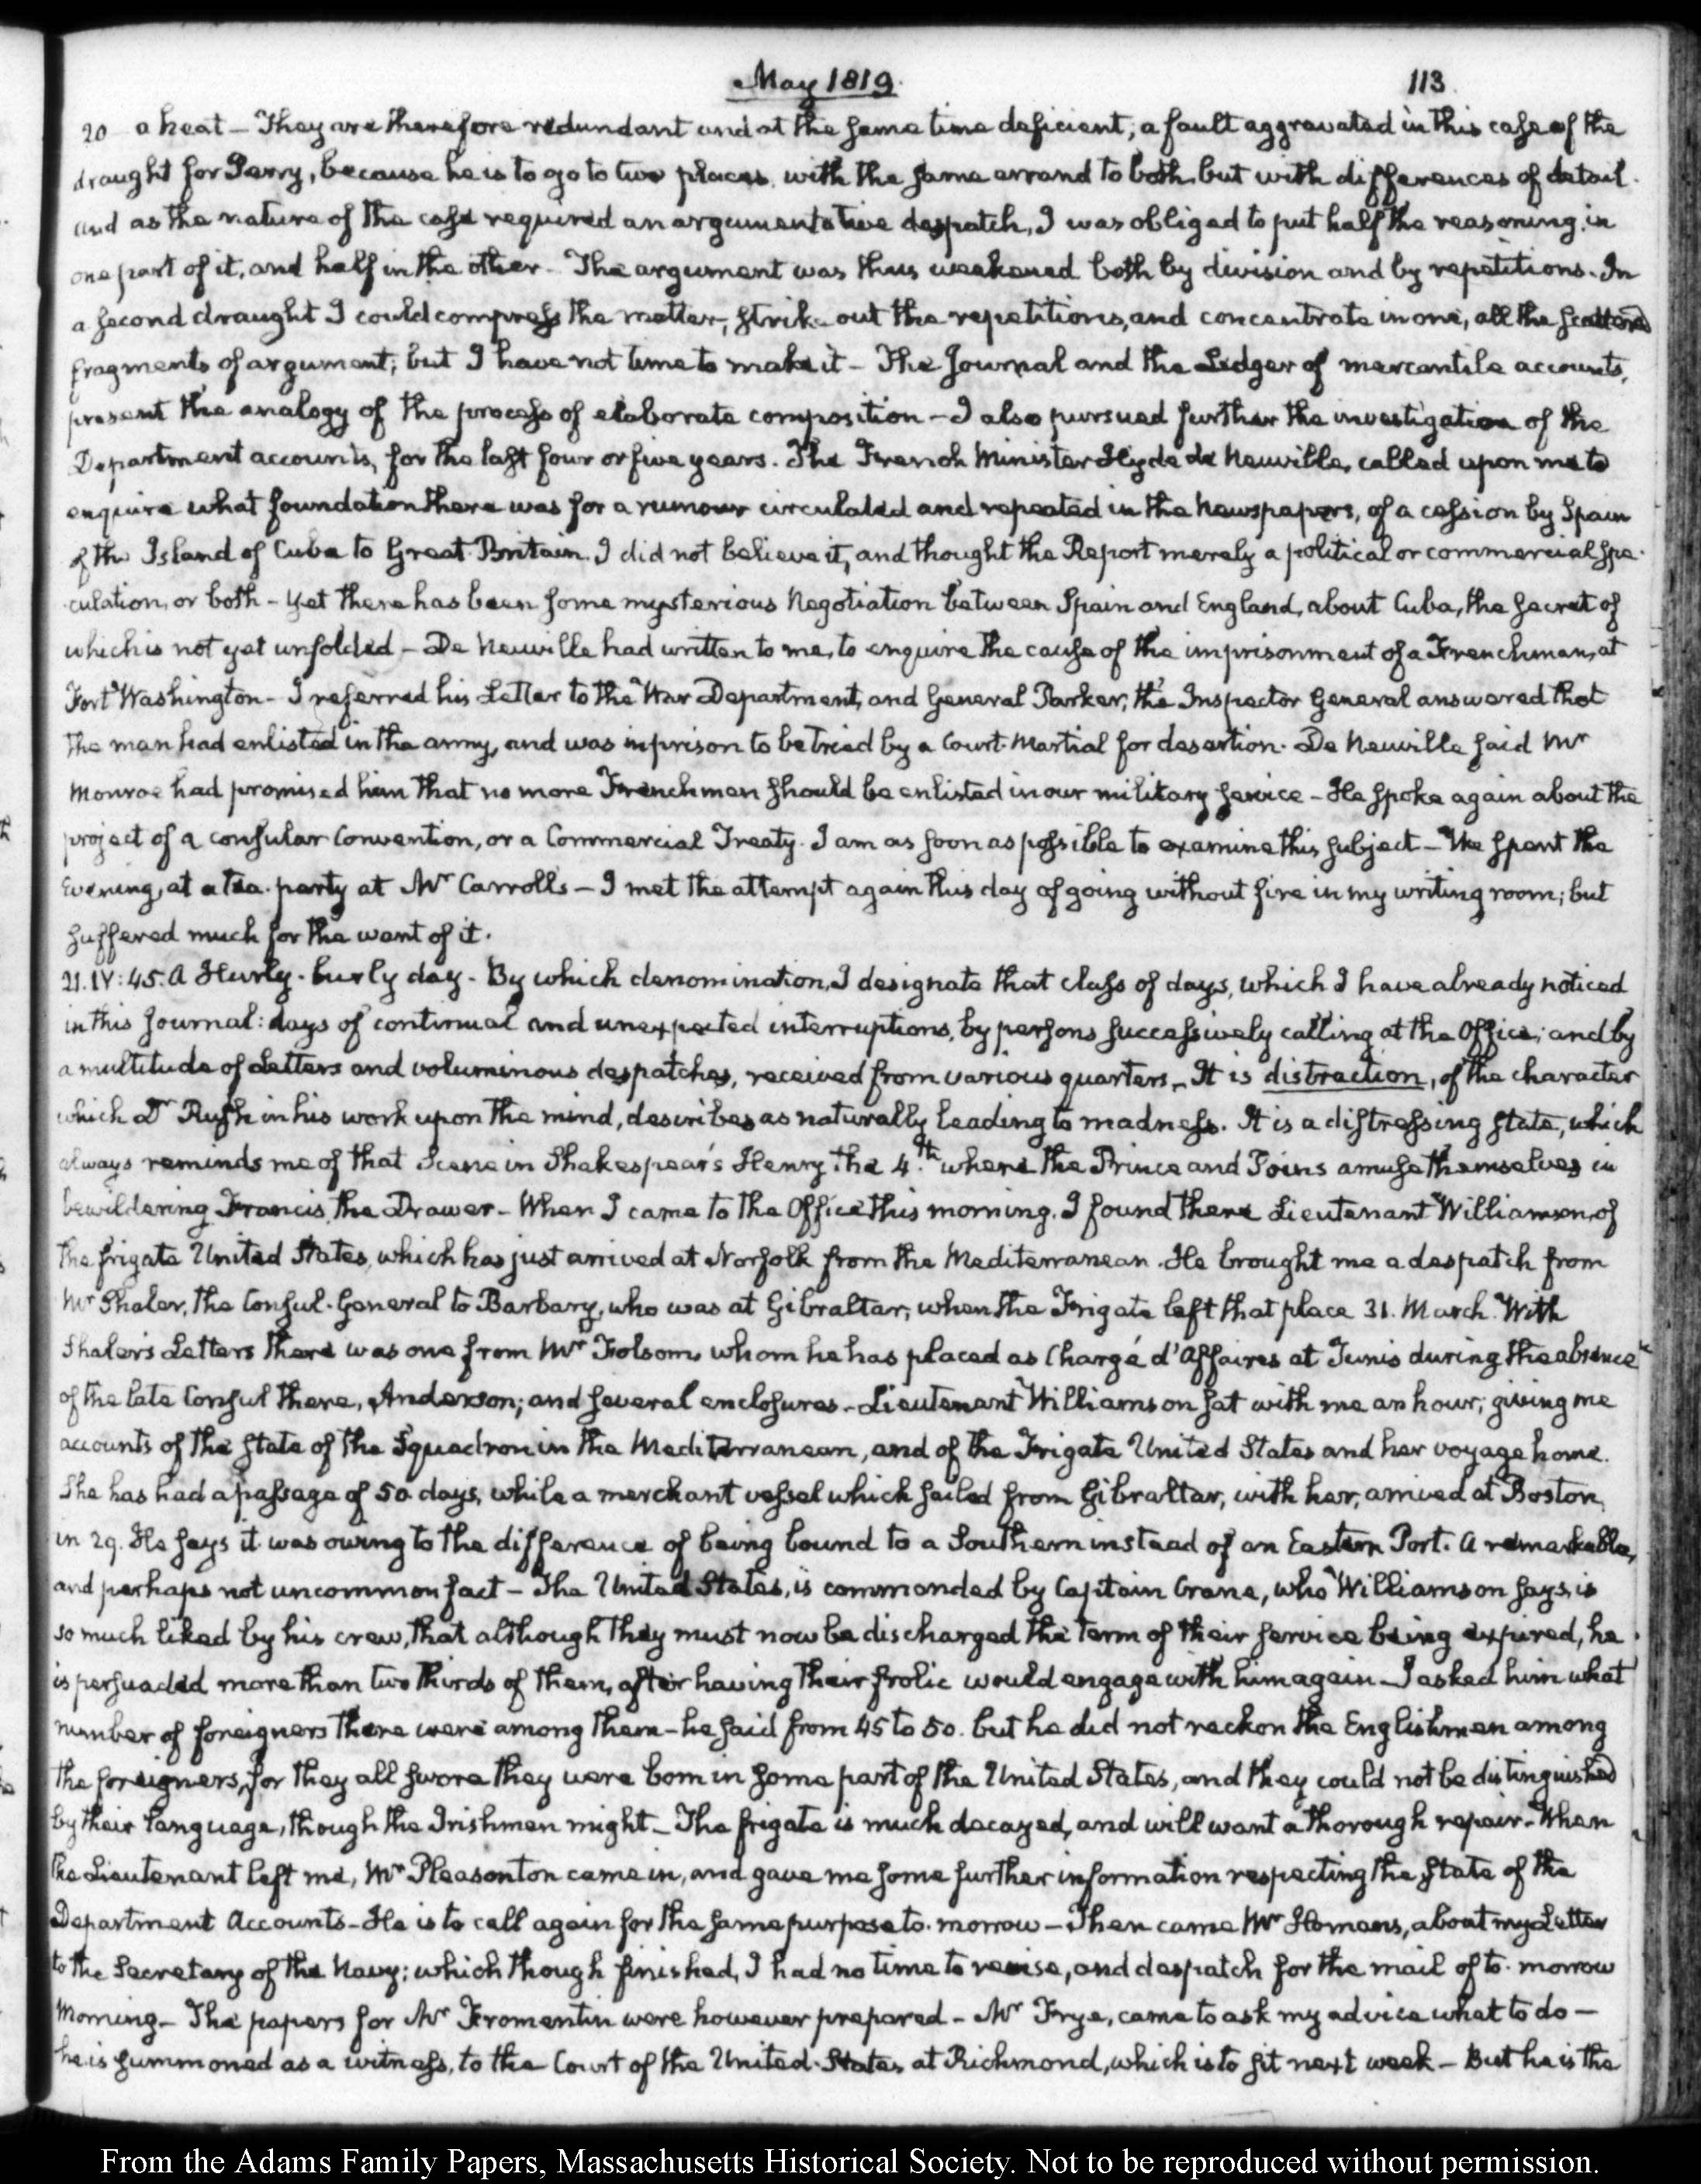 May 1819.
113
20 a heat — They are therefore redundant and at the same time deficient; a fault aggravated in this case of the
draught for Perry, because he is to go to two places, with the same errand to both, but with differences of detail.
and as the nature of the case required an argumentative despatch, I was obliged to put half the reasoning in
one part of it, and half in the other — The argument was thus weakened both by division and by repetitions. In
a second draught I could compress the matter, strike out the repetitions, and concentrate in one, all the scattered
fragments of argument; but I have not time to make it — The Journal and the Ledger of mercantile accounts,
present the analogy of the process of elaborate composition — I also pursued further the investigation of the
Department accounts, for the last four or five years. The French Minister Hyde de Neuville, called upon me to
enquire what foundation there was for a rumour circulated and repeated in the Newspapers, of a cession by Spain
of the Island of Cuba to Great-Britain. I did not believe it, and thought the Report merely a political or commercial spe-
culation, or both — Yet there has been some mysterious Negotiation between Spain and England, about Cuba, the secret of
which is not yet unfolded — De Neuville had written to me, to enquire the cause of the imprisonment of a Frenchman, at
Fort Washington — I referred his Letter to the War Department, and General Parker, the Inspector General answered that
the man had enlisted in the army, and was in prison to be tried by a Court-Martial for desertion. De Neuville said Mr
Monroe had promised him that no more Frenchmen should be enlisted in our military service — He spoke again about the
project of a consular Convention, or a Commercial Treaty. I am as soon as possible to examine this subject — We spent the
Evening, at a tea-party at Mr Carrolls — I met the attempt again this day of going without fire in my writing room; but
suffered much for the want of it.
21. IV:45. A Hurly-burly day — By which denomination, I designate that class of days, which I have already noticed
in this Journal: days of continual and unexpected interruptions, by persons successively calling at the Office; and by
a multitude of Letters and voluminous despatches, received from various quarters — It is distraction, of the character
which Dr Rush in his work upon the mind, describes as naturally leading to madness. It is a distressing state, which
always reminds me of that Scene in Shakespear's Henry the 4.th where the Prince and Poins amuse themselves in
bewildering Francis, the Drawer — When I came to the Office this morning, I found there Lieutenant Williamson, of
the frigate United States, which has just arrived at Norfolk from the Mediterranean. He brought me a despatch from
Mr Shaler, the Consul-General to Barbary, who was at Gibraltar, when the Frigate left that place 31. March. With
Shaler's Letters there was one from Mr Folsom, whom he has placed as Chargé d'Affaires at Tunis during the absence
of the late Consul there, Anderson; and several enclosures — Lieutenant Williamson sat with me an hour; giving me
accounts of the state of the Squadron in the Mediterranean, and of the Frigate United States and her voyage home.
She has had a passage of 50 days, while a merchant vessel which sailed from Gibraltar, with her, arrived at Boston,
in 29. He says it was owing to the difference of being bound to a Southern instead of an Eastern Port. A remarkable,
and perhaps not uncommon fact — The United States, is commanded by Captain Crane, who Williamson says, is
so much liked by his crew, that although they must now be discharged the term of their service being expired, he
is persuaded more than two thirds of them, after having their frolic would engage with him again — I asked him what
number of foreigners there were among them — he said from 45 to 50. but he did not reckon the Englishmen among
the foreigners, for they all swore they were born in some part of the United States, and they could not be distinguished
by their language, though the Irishmen might — The frigate is much decayed, and will want a thorough repair — When
the Lieutenant left me, Mr Pleasonton came in, and gave me some further information respecting the state of the
Department Accounts — He is to call again for the same purpose to-morrow — Then came Mr Homans, about my Letter
to the Secretary of the Navy; which though finished, I had no time to revise, and despatch for the mail of to-morrow
Morning — The papers for Mr Fromentin were however prepared — Mr Frye, came to ask my advice what to do —
he is summoned as a witness, to the Court of the United States at Richmond, which is to sit next week — But he is the
From the Adams Family Papers, Massachusetts Historical Society. Not to be reproduced without permission.